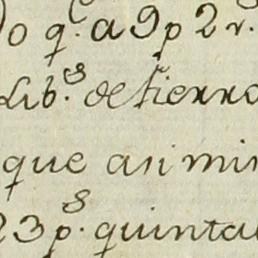 o q.^e a 9 p 2 r.^s
Lib.^s de fierro
que asi mi
23 p.^s quinta